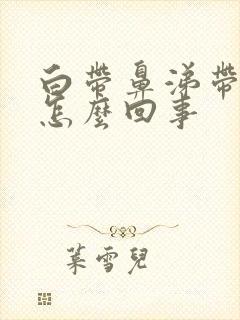 白帶鼻涕帶
怎麼回事
葉雪兒